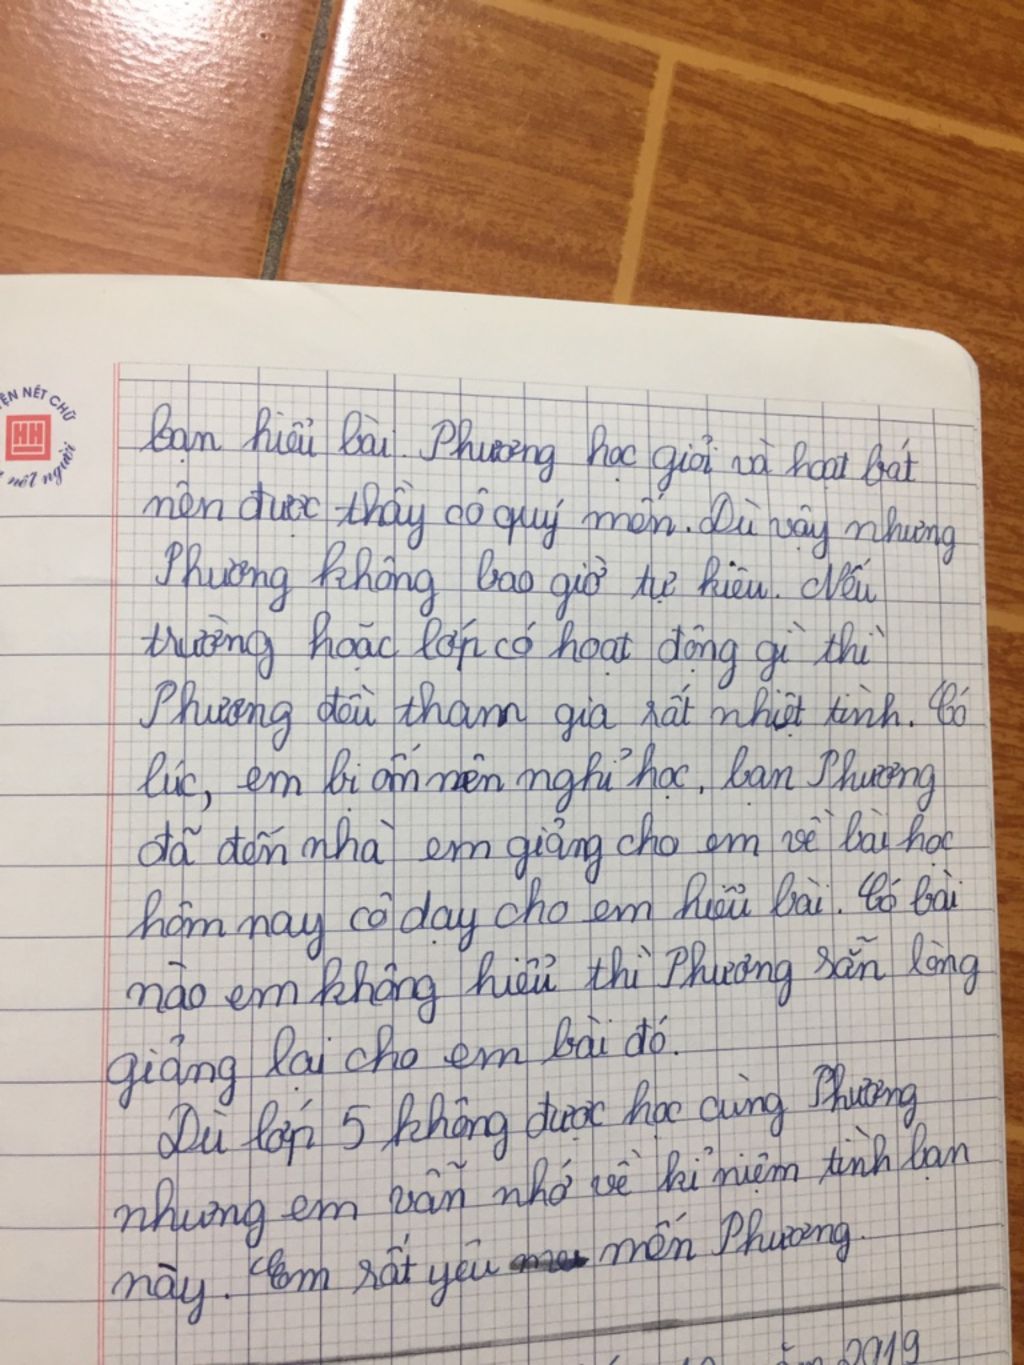 ỆN NẾT CHỮ
HH
nết người
bạn hiểu bài. Phương học giỏi và hoạt bát
nên được thầy cô quý mến. Dù vậy nhưng
Phương không bao giờ tự kiêu. Nếu
trường hoặc lớp có hoạt động gì thì
Phương đều tham gia rất nhiệt tình. Có
lúc, em bị ốm nên nghỉ học, bạn Phương
đã đến nhà em giảng cho em về bài học
hôm nay cô dạy cho em hiểu bài. Có bài
nào em không hiểu thì Phương sẵn lòng
giảng lại cho em bài đó.
Dù lớp 5 không được học cùng Phương
nhưng em vẫn nhớ về kỉ niệm tình bạn
này. Em rất yêu mến Phương.
năm 2019